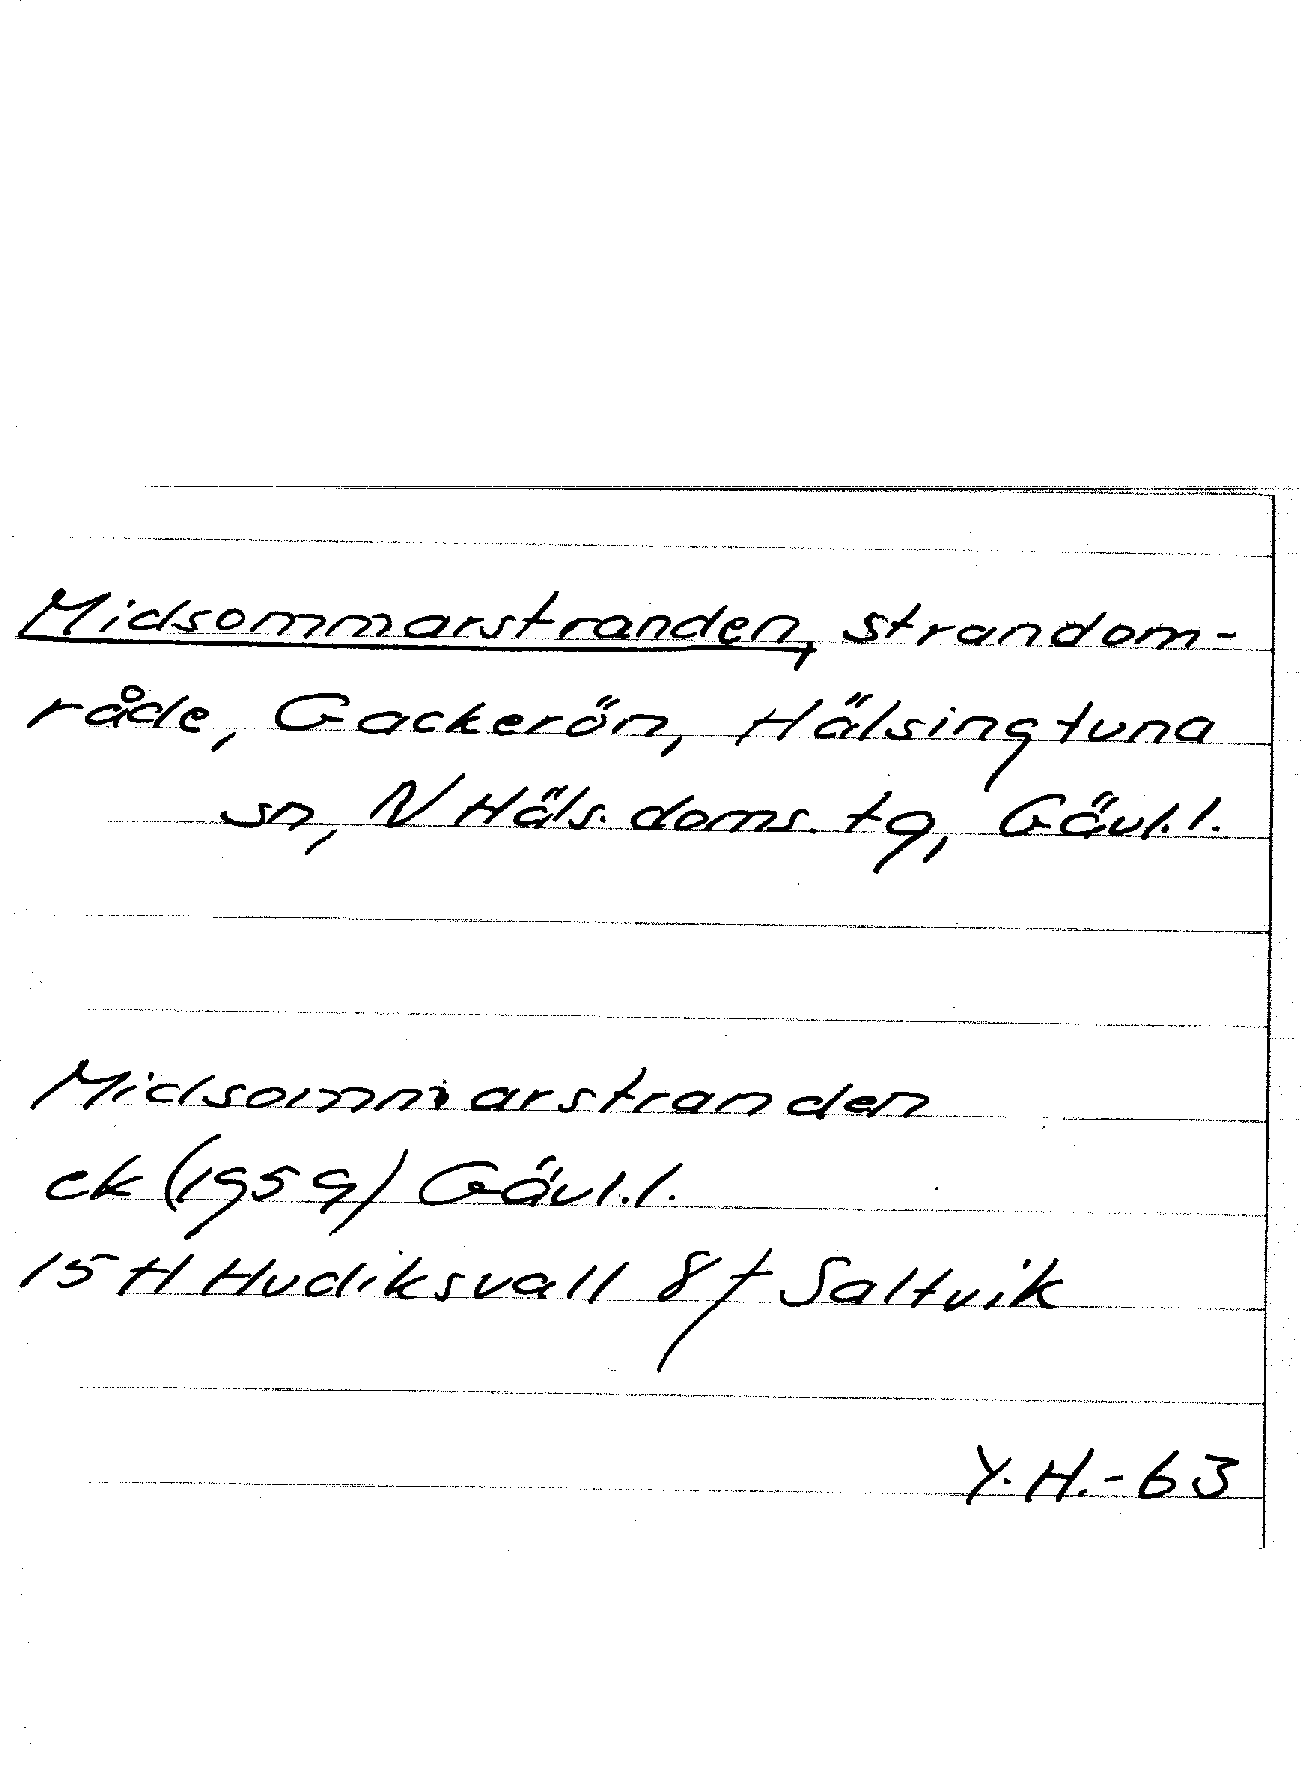 Midsommarstranden, strandom-
råde, Gackerön, Hälsingtuna
sn, N Häls. doms. tg, Gävl. l.
Midsommarstranden
ek (1959) Gävl. l.
15 H Hudiksvall 8 f Saltvik
Y. H. - 63